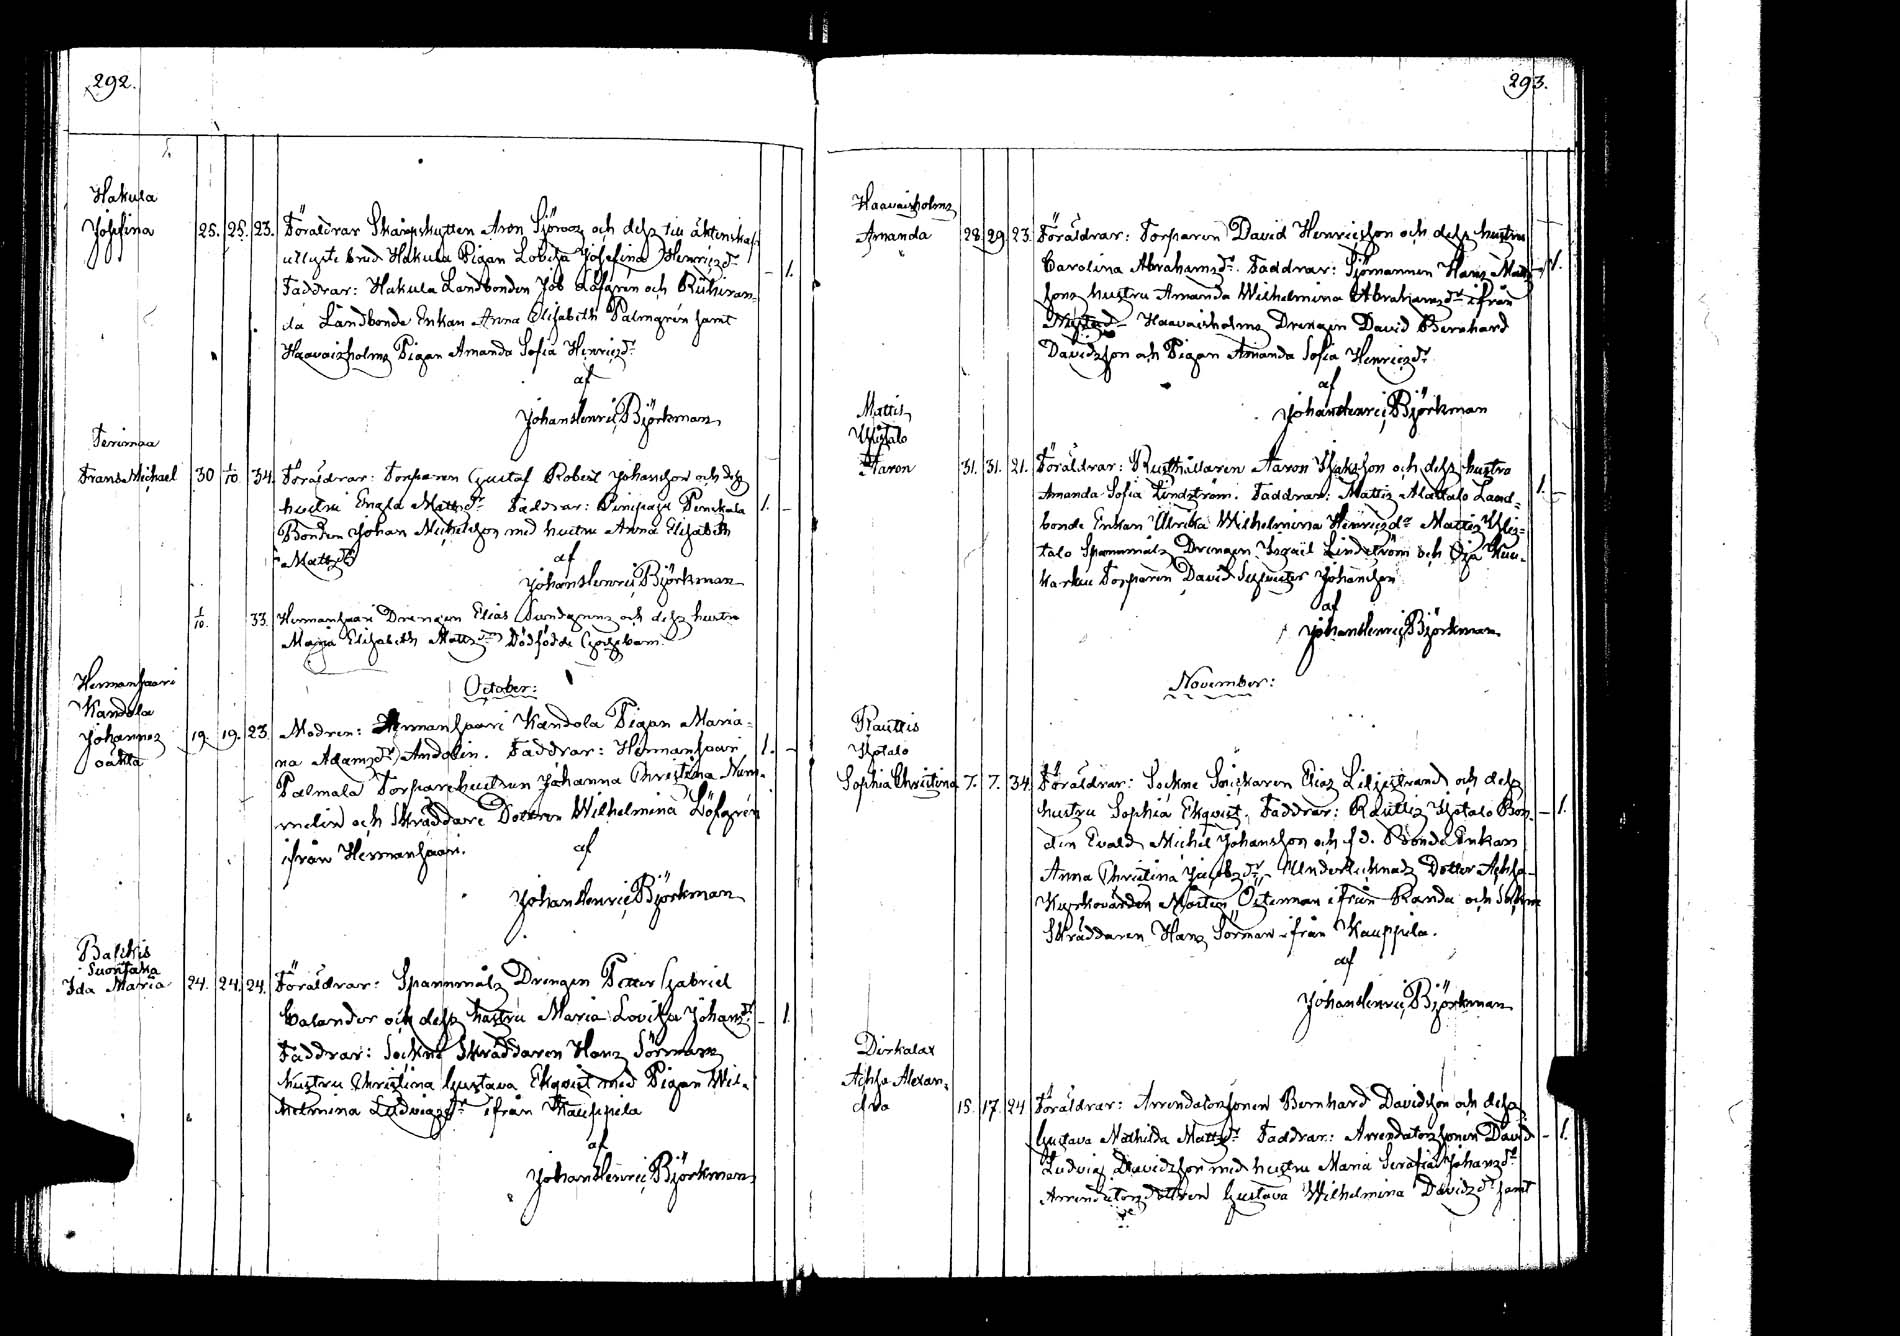 292.
Hakula
Josefina 25. 25. 23. Föräldrar Skarpskytten Aron Sjöroos och dess till äktenskap
utlyste brud Hakula Pigan Lovisa Josefina Henricsdr
Faddrar: Hakula Landbonden Job Löfgrén och
da Landbonde Enkan Anna Elisabeth Palmgrén samt
Haavaisholms Pigan Amanda Sofia Henricsdr
af
Johan Henric Björkman
Terimaa
Frans Michael 30 1/10 34. Föräldrar: Torparen Gustaf Robert Johansson och dess
hustru Engla Mattsdr Faddrar: Pinipaju Penikala
Bonden Johan Michelsson med hustru Anna Elisabeth
Mattsdr
af
Johan Henric Björkman
1/10. 33. Hermansaari Drengen Elias Sundgrens och dess hustru
Maja Elisabeth Mattsdr Dödfödde Gossebarn.
October:
Hermansaari
Kandola
Johannes 19 19. 23. Modren: Hermansaari Kandola Pigan Maria-
oäkta
na Adamsdr Andolin. Faddrar: Hermansaari
Palmala Torparehustrun Johanna Christina Num-
melin och Skräddare Dottren Wilhelmina Löfgrén
ifrån Hermansaari.
af
Johan Henric Björkman
Balikis
Suontaka
Ida Maria 24. 24. 24. Föräldrar: Spannmåls Drengen Petter Gabriel
Calander och dess hustru Maria Lovisa Johansdr
Faddrar: Sockne Skräddaren Hans Sörmans
hustru Christina Gustava Ekqvist med Pigan Wil-
helmina Ludvigsdr ifrån Kauppila
af
Johan Henric Björkman
293.
Haavaisholms
Amanda 28. 29. 23. Föräldrar: Torparen David Henricsson och dess hustru
Carolina Abrahamsdr. Faddrar: Sjömannen Hans Matts-
sons hustru Amanda Wilhelmina Abrahamsdr ifrån
Nystad Haavaisholms Drengen David Bernhard
Davidsson och Pigan Amanda Sofia Henricsdr
af
Johan Henric Björkman
Mattis
Ylistalo
Aaron 31. 31. 21. Föräldrar: Rusthållaren Aaron Isaksson och dess hustru
Amanda Sofia Lindström. Faddrar: Mattis Alattalo Land-
bonde Enkan Ulrika Wilhelmina Henricsdr Mattis Ylis-
talo Spannmåls Drengen Israël Lindström och Oja Kuu-
karkeu Torparen David Sylvester Johansson
af
Johan Henric Björkman
November:
Rauttis
Ysotalo
Sophia Christina 7. 7. 34. Föräldrar: Sockne Snickaren Elias Liljestrand och dess
hustru Sophia Ekqvist. Faddrar: Rauttis Ysotalo Bon-
den Evald Michel Johansson och f.d. Bonde Enkan
Anna Christina Jacobsdr, Undertecknads Dotter Achsa
Kyrkovärden Mårten Österman ifrån Randa och Sockne
Skräddaren Hans Sörman ifrån Kauppila.
af
Johan Henric Björkman
Dirkalax
Achsa Alexan-
dra 15. 17. 24 Föräldrar: Arrendatorssonen Bernhard Davidsson och dess
Gustava Mathilda Mattsdr Faddrar: Arrendatorssonen David
Ludvig Davidsson med hustru Maria Serafia Johansdr
Arrendatorsdottren Gustava Wilhelmina Davidsdr samt